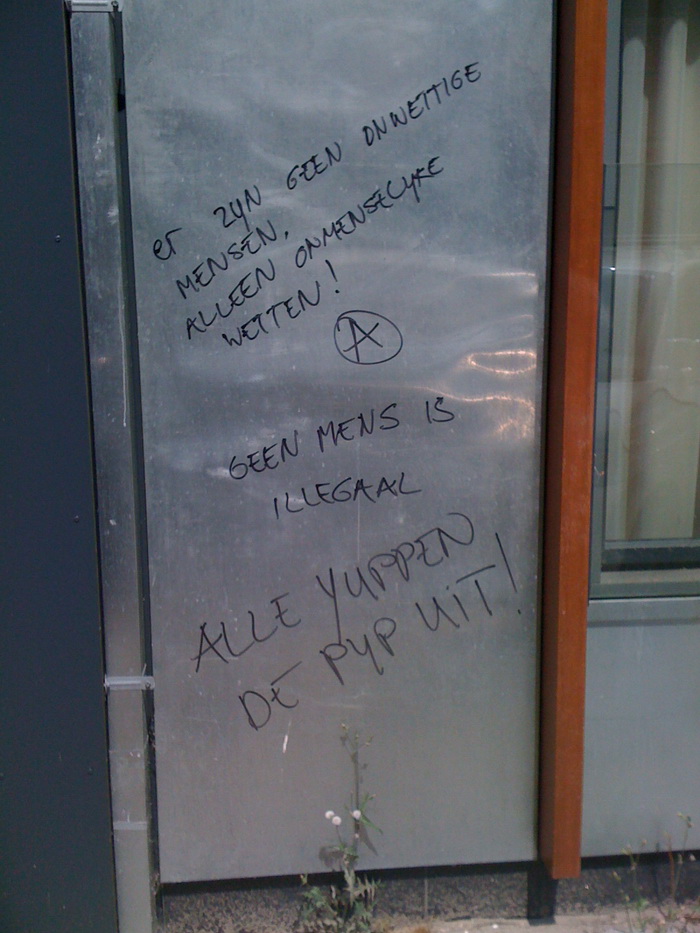 er ZYN GEEN ONWETTIGE
MENSEN,
ALLEEN ONMENSELYKE
WETTEN!
A
GEEN MENS IS
ILLEGAAL
ALLE YUPPEN
DE PYP UIT!